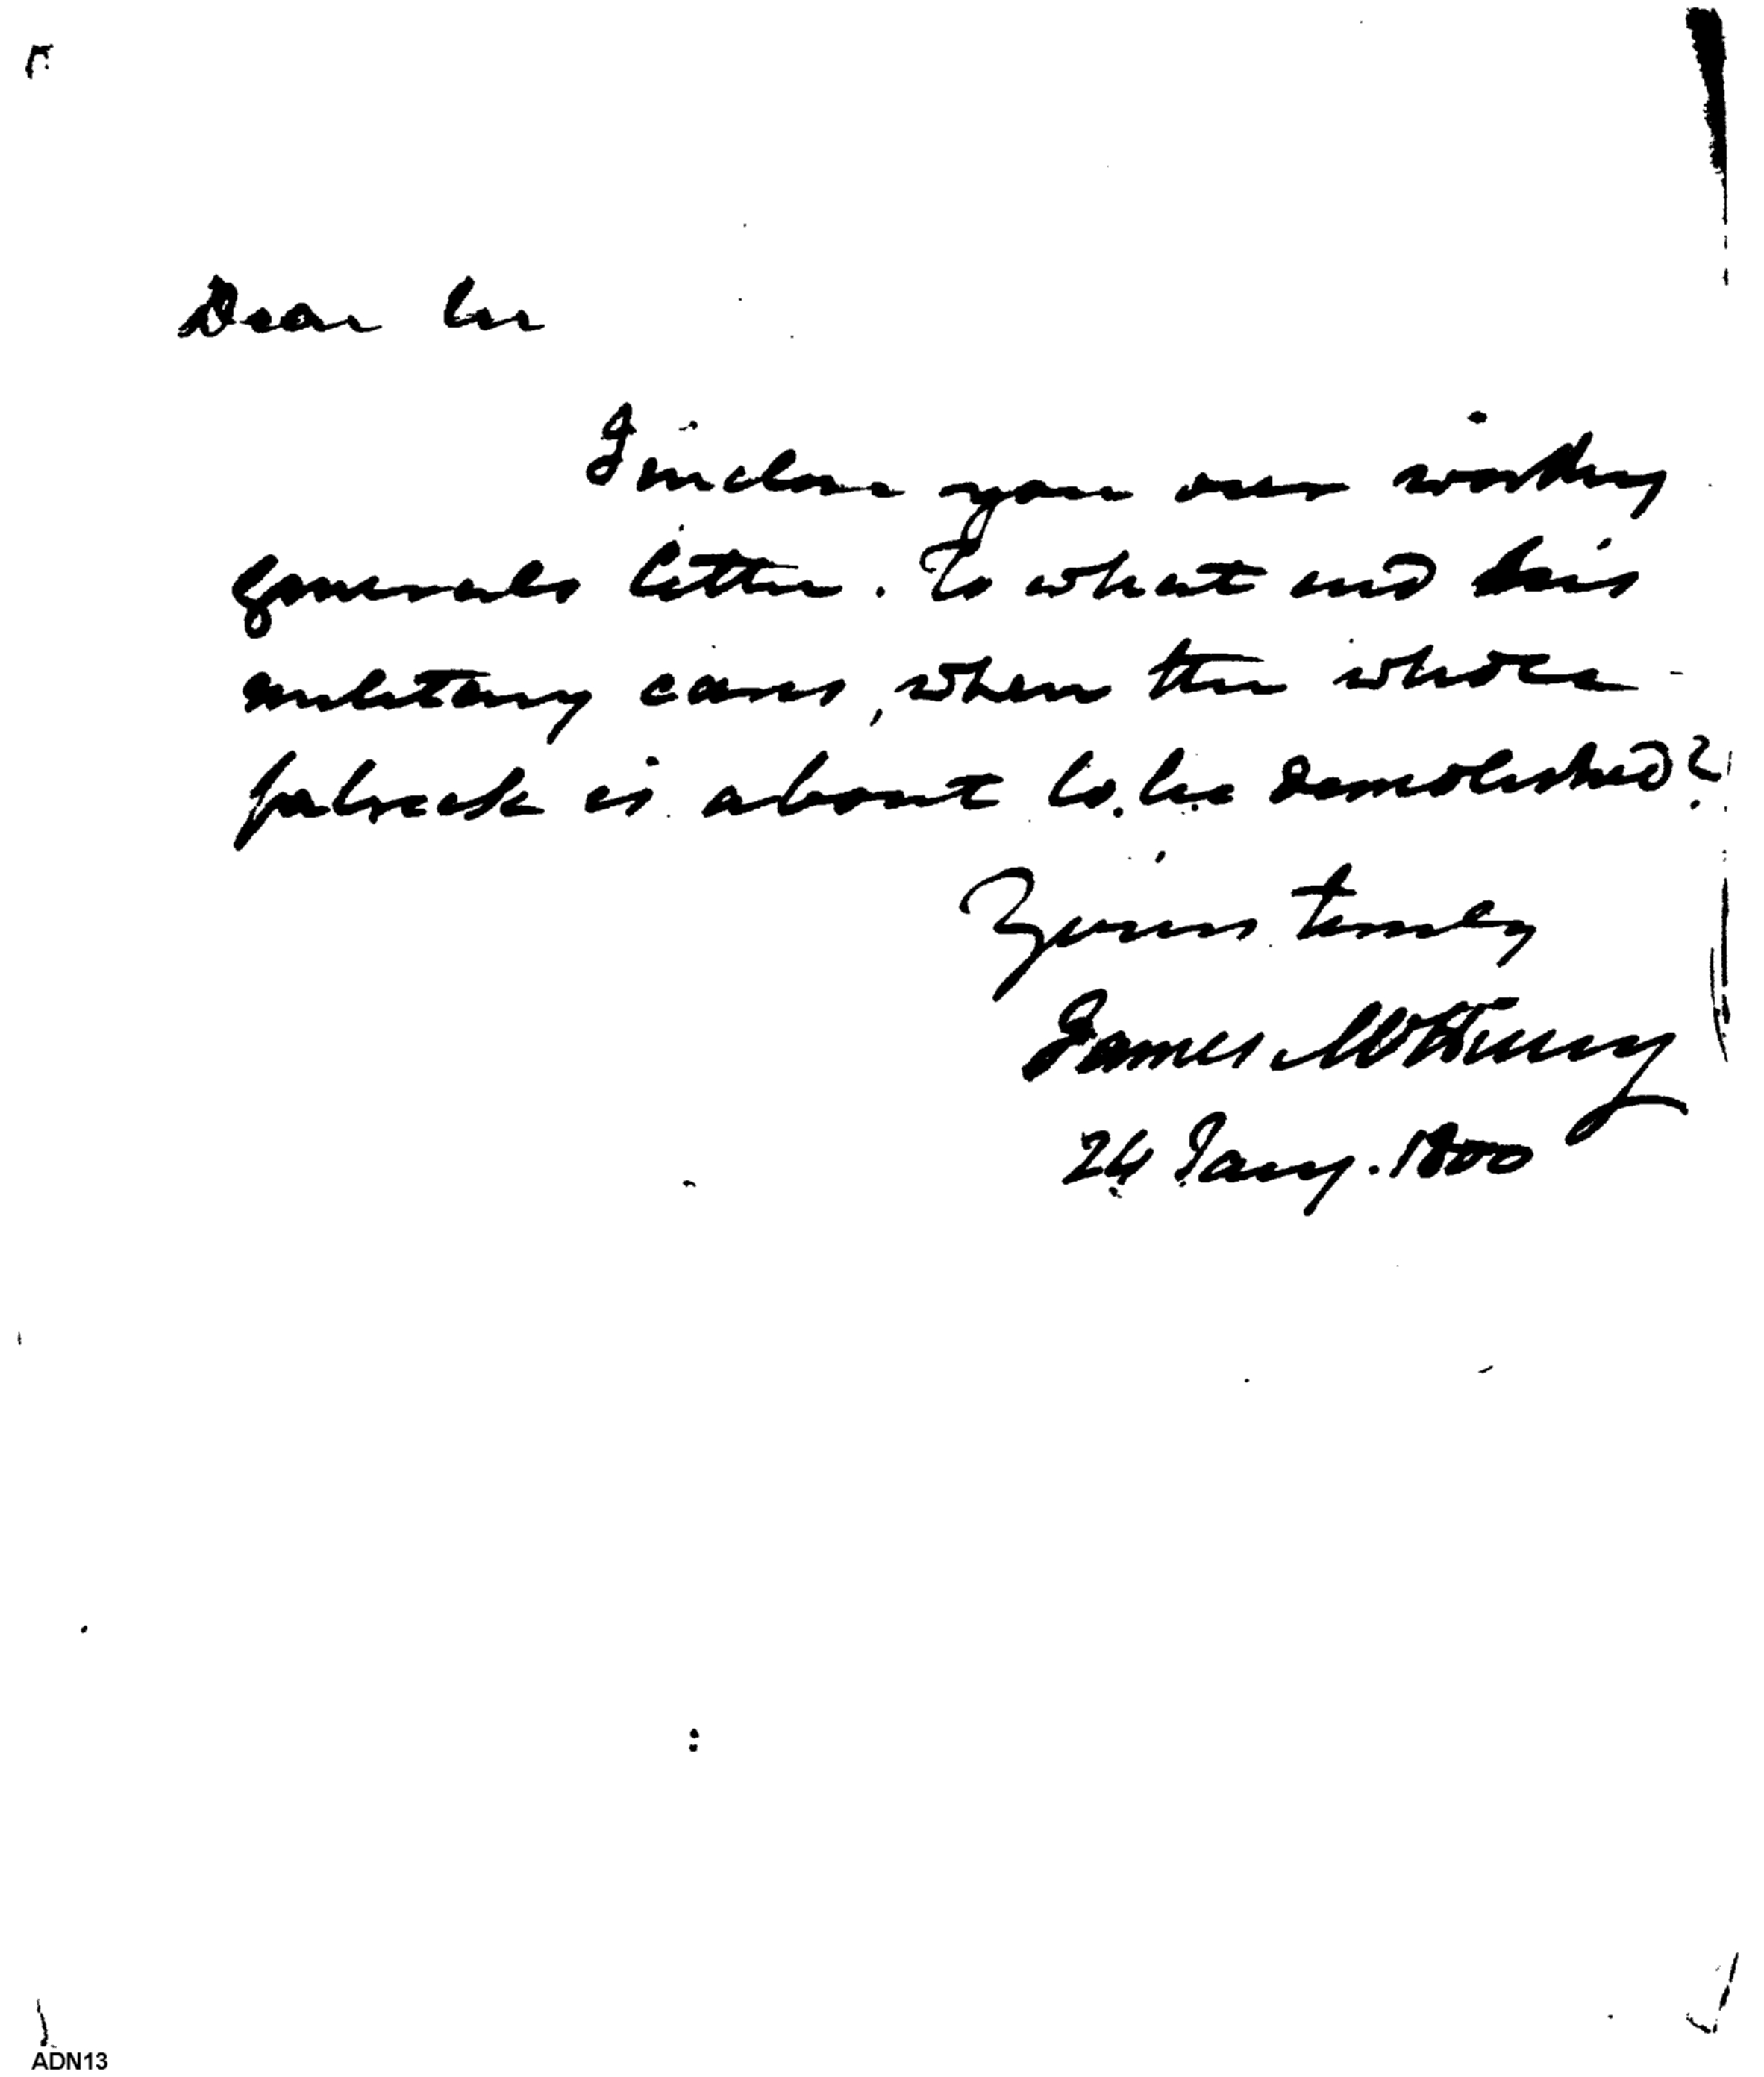 Dear Sir
I inclose you our worthy
Generals letter. To what end his
military cares, when the whole
fabrick is about to be demolished?
Yours truly
James McHenry
24 Jany. 1800
ADN13